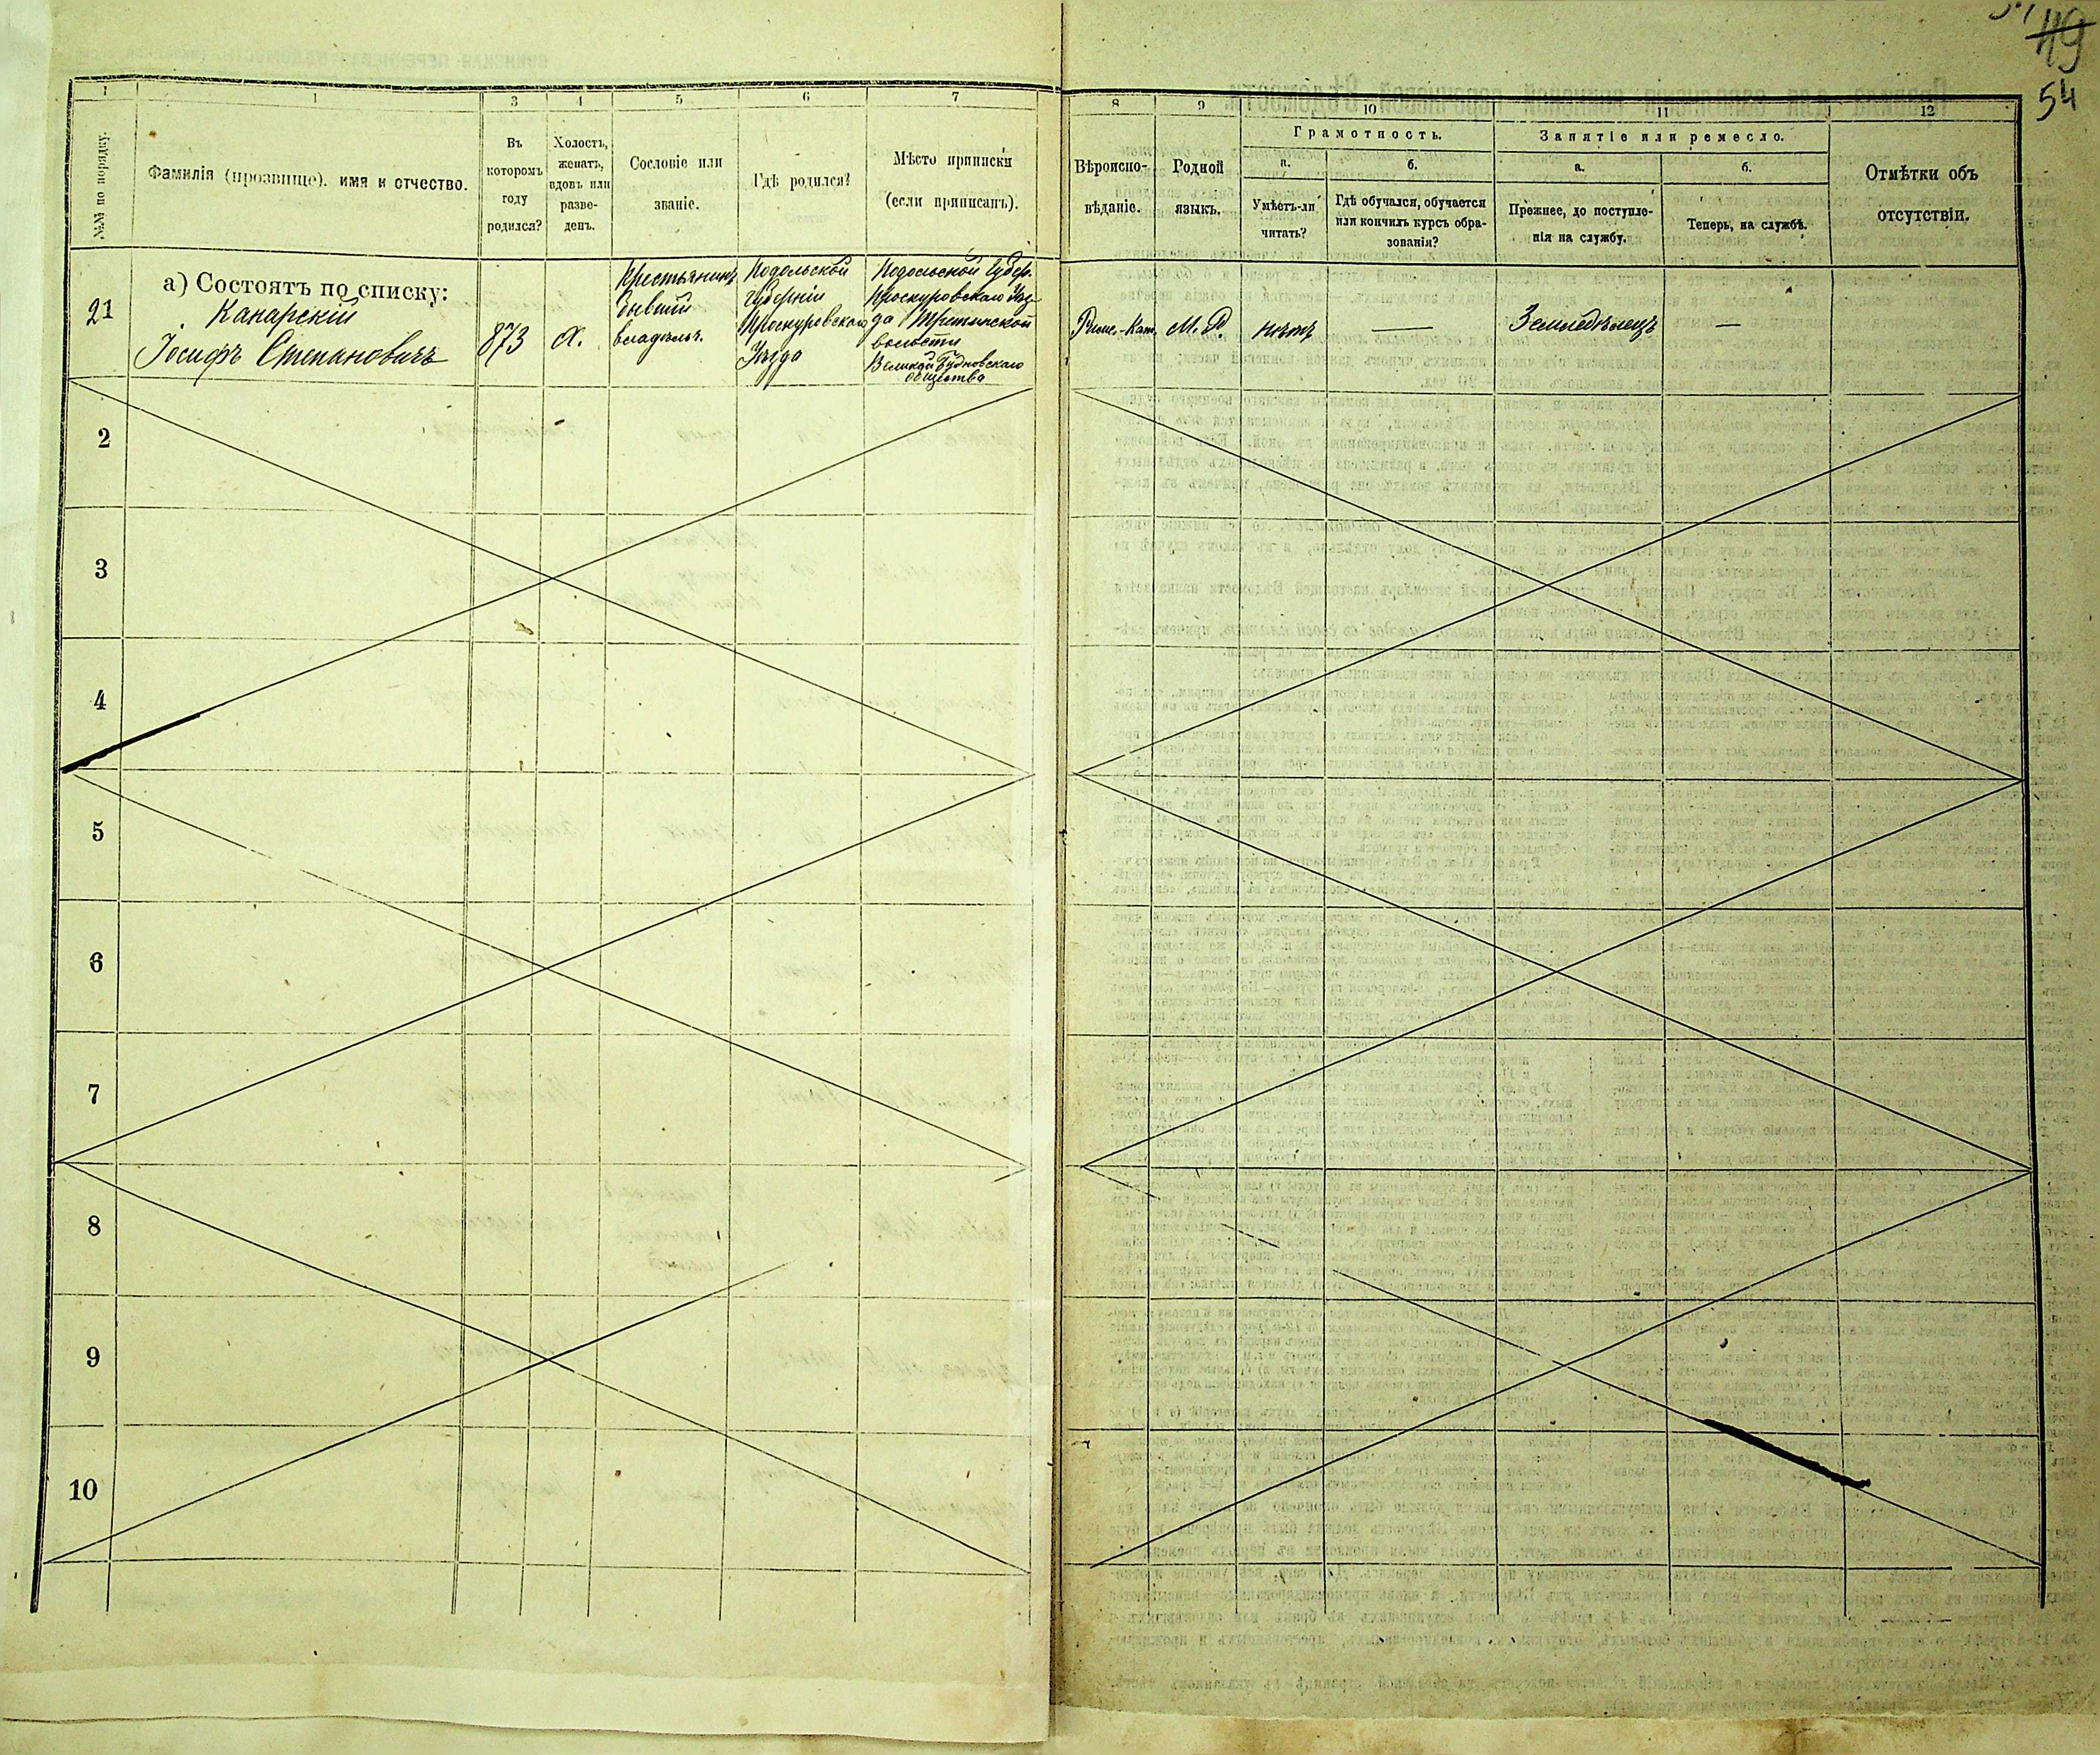 49
54
1
1
3
4
5
6
7
8
9
10
11
12
№№ по порядку.
Фамилія (прозвище). имя и отчество.
Въ
которомъ
году
родился?
Холостъ,
женатъ,
вдовъ или
разве-
денъ.
Сословіе или
званіе.
Гдѣ родился?
Мѣсто приписки
(если приписанъ).
Вѣроиспо-
вѣданіе.
Родной
языкъ.
Грамотность.
а.
Умѣетъ-ли
читать?
б.
Гдѣ обучался, обучается
или кончилъ курсъ обра-
зованія?
Занятіе или ремесло.
а.
Прежнее, до поступле-
нія на службу.
б.
Теперь, на службѣ.
Отмѣтки объ
отсутствіи.
а) Состоятъ по списку:
21
Канарскій
Іосифъ Степановичъ
873
Х.
Крестьянинъ
бывшій
владѣльч.
Подольской
губерніи
Проскуровскаго
Уѣзда
Подольской Губер.
Проскуровскаго Уѣз-
да
волости
общества
Римс.-Кат.
М. Р.
нѣтъ
—
Земледѣлецъ
—
2
3
4
5
6
7
8
9
10